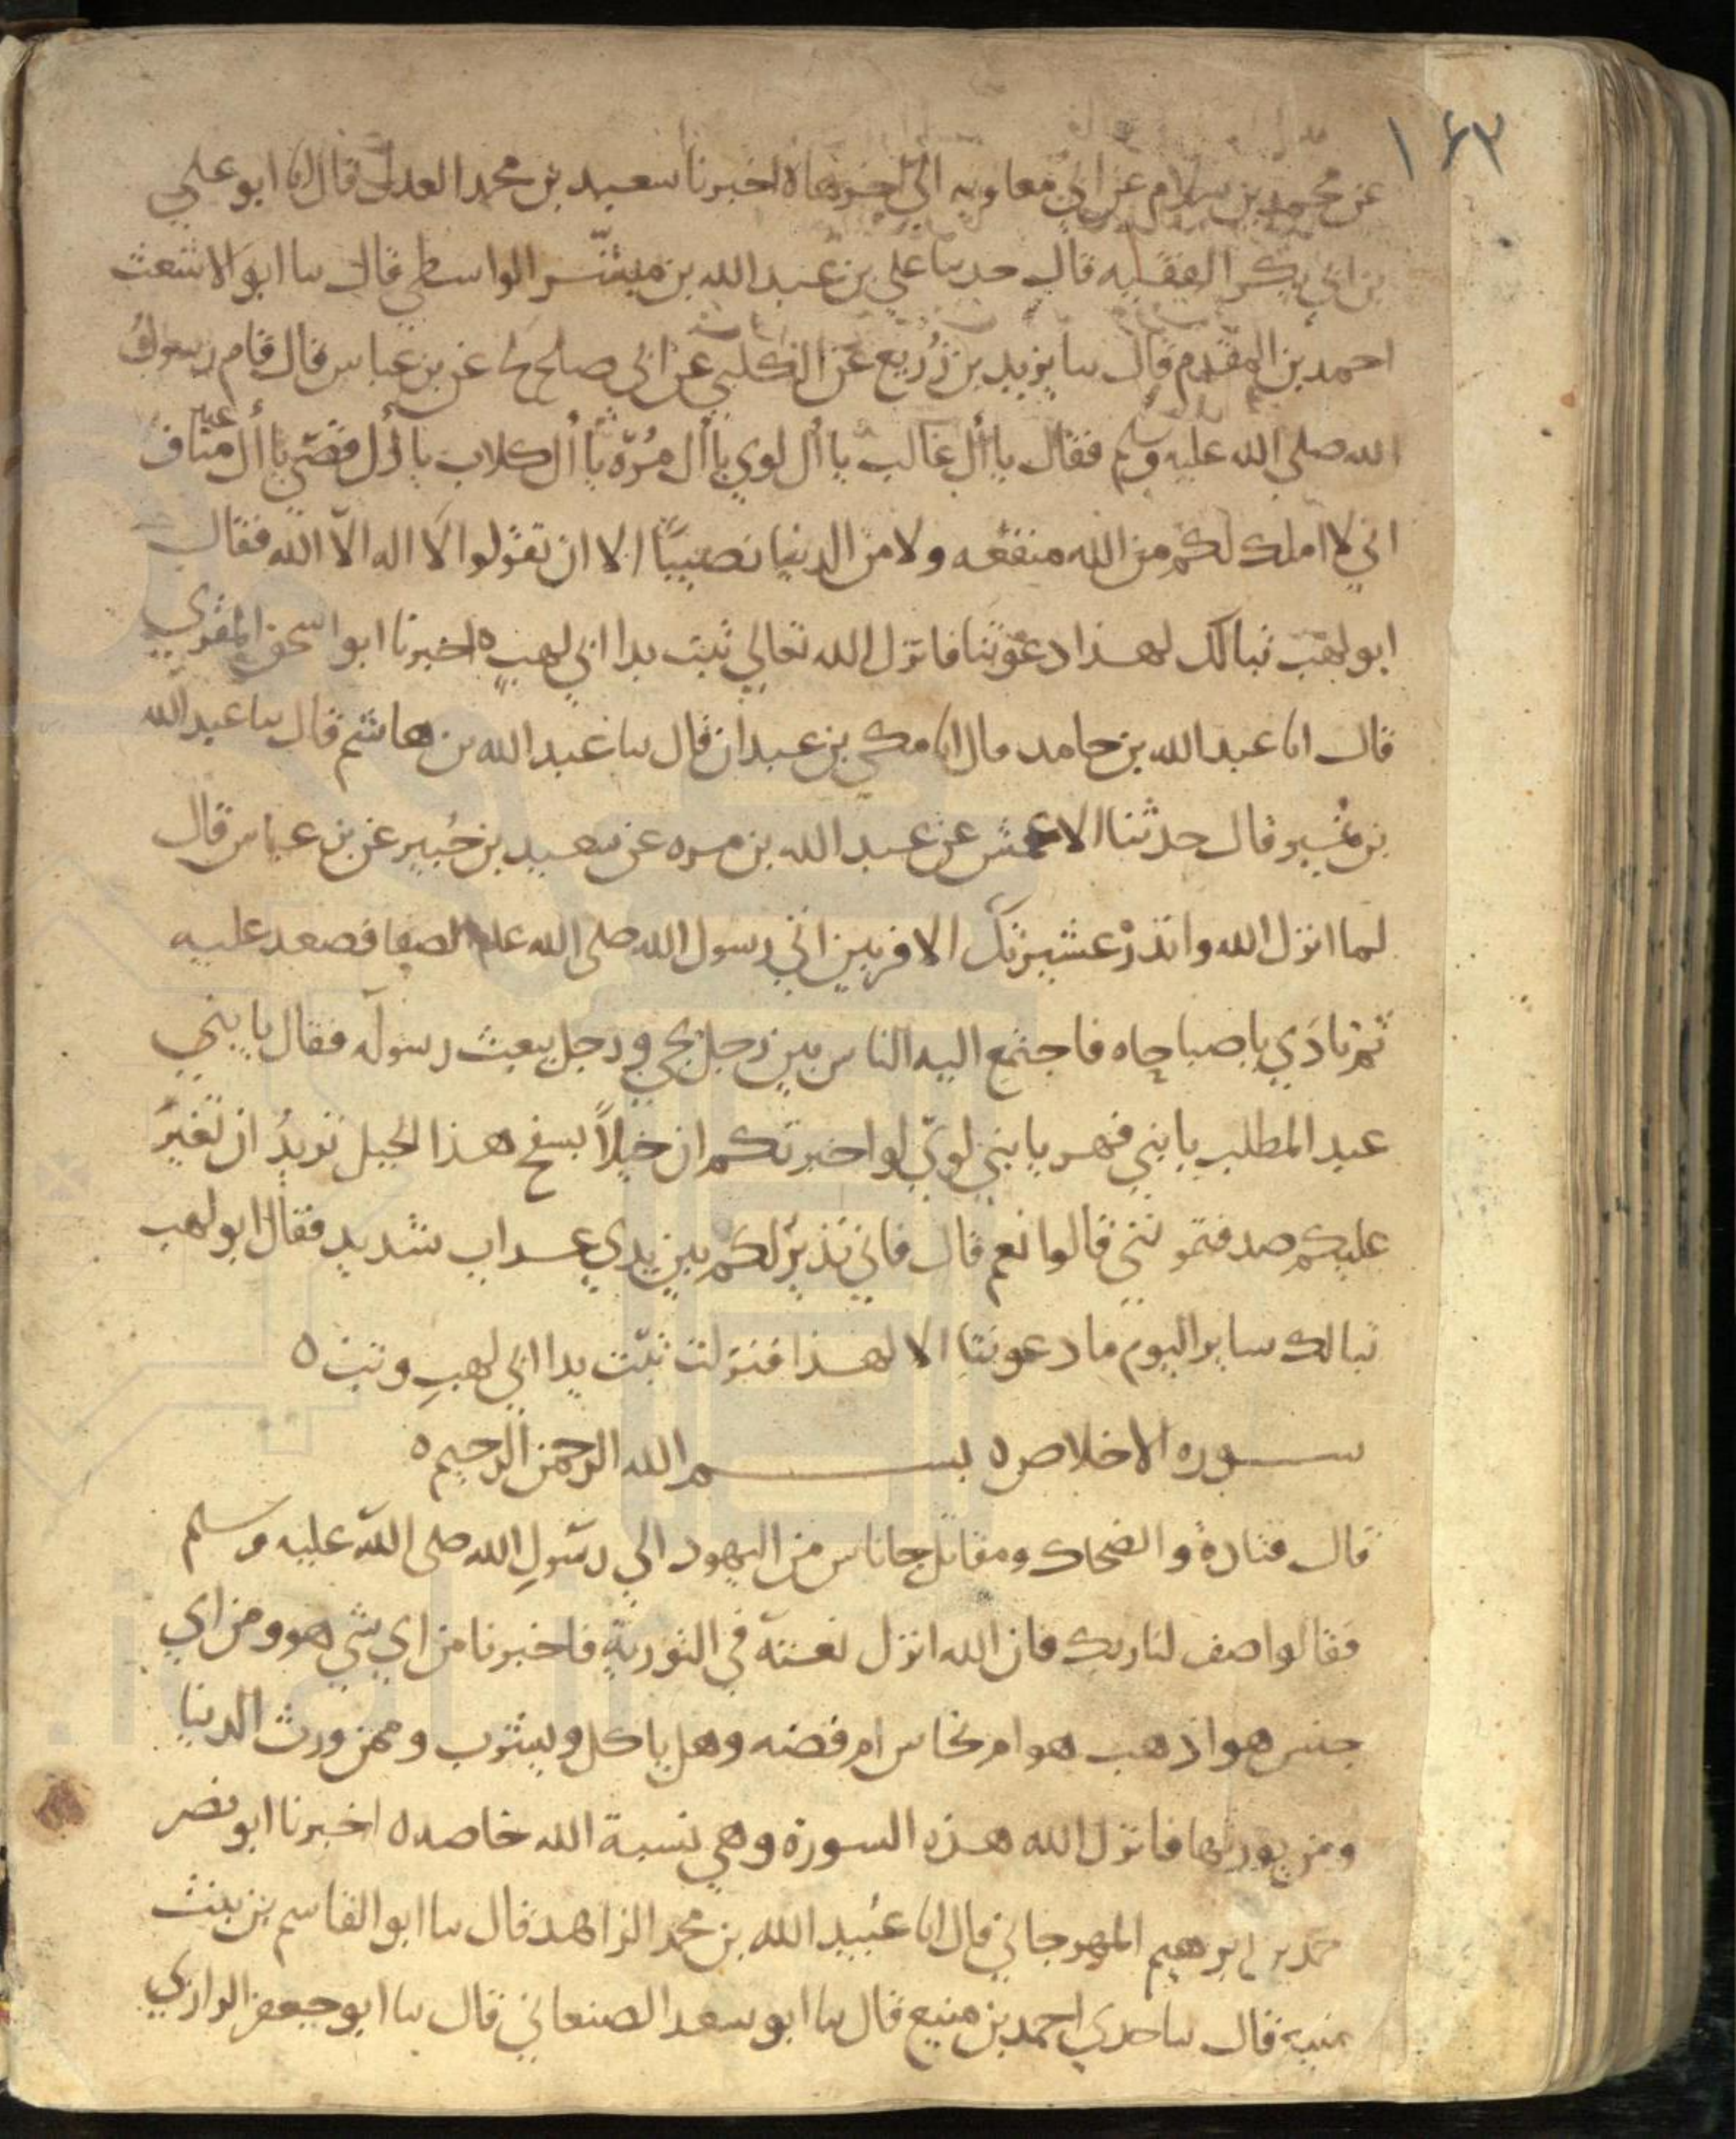 ١٦٣
عن محمد بن سلام عن ابي معاويه الي اخرها ه اخبرنا سعيد بن محمد العدل قال انا ابو علي
بن ابي بكر الفقيه قال حدثنا علي بن عبد الله بن مبشر الواسطي قال ثنا ابو الاشعث
احمد بن المقدم قال ثنا يزيد بن زُريع عن الكلبي عن ابي صلح عن بن عباس قال قام رسول
الله صلى الله عليه وسلم فقال يا أل غالب يا أل لوي يا أل مُرّه يا أل كلاب يا أل قصّي يا أل عبد مناف
اني لا املك لكم من الله منفعه ولا من الدنيا نصيبًا الا ان تقولوا لا اله الا الله فقال
ابو لهب تبا لك لهذا دعوتنا فانزل الله تعالي تبت يدا ابي لهبٍ ه اخبرنا ابو اسحق المقري
قال انا عبد الله بن حامد قال انا مكي بن عبدان قال ثنا عبد الله بن هاشم قال ثنا عبد الله
بن نُمير قال حدثنا الاعمش عن عبد الله بن مره عن سعيد بن جُبير عن بن عباس قال
لما انزل الله وانذرْ عشيرتك الاقربين اتي رسول الله صلى الله عليه الصفا فصعد عليه
ثم نادَي يا صباحاه فاجتمع اليه الناس بين رجل يجي ورجل يبعث رسوله فقال يا بني
عبد المطلب يا بني فهر يا بني لويّ لو اخبرتكم ان خيلاً بسفح هذا الجبل تريدُ ان تُغيرَ
عليكم صدقتموني قالوا نعم قال فاني نذيرٌ لكم بين يدي عذاب شديد فقال ابو لهب
تبا لك ساير اليوم ما دعوتنا الا لهذا فنزلت تبّت يدا ابي لهبٍ وتبت ه
سوره الاخلاص ه بسم الله الرحمن الرحيم ه
قال قتادة والضحاك ومقاتل جا ناس من اليهود الي رسولِ الله صلى الله عليه وسلم
فقالوا صف لنا ربك فان الله انزل نعته في التورية فاخبرنا من اي شي هو ومن اي
جنس هو اذهب هو ام نحاس ام فضه وهل ياكل ويشرب وممن ورث الدنيا
ومن يورثها فانزل الله هذه السورة وهي نسبة الله خاصه ه اخبرنا ابو نصر
حمد بن ابرهيم المهرجاني قال انا عُبيد الله بن محمد الزاهد قال ثنا ابو القاسم بن بنت
منيع قال ثنا جدي احمد بن منيع قال ثنا ابو سعد الصنعاني قال ثنا ابو جعفر الرازي